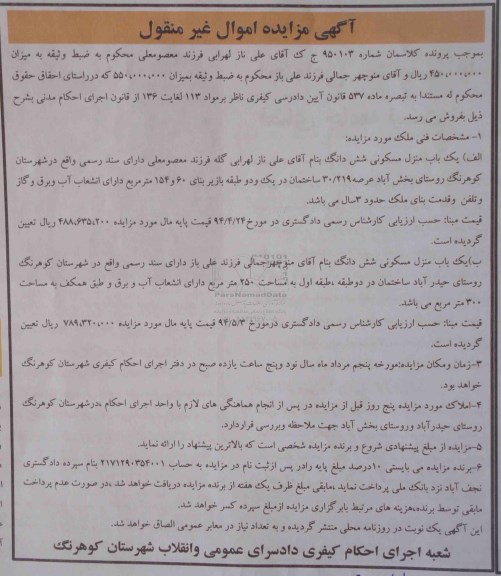 آگهی مزایده اموال غیر منقول
بموجب پرونده کلاسمان شماره ۹۵۰۱۰۳ ج ک آقای علی ناز لهرابی فرزند معصومعلی محکوم به ضبط وثیقه به میزان
۴۵۰،۰۰۰،۰۰۰ ریال و آقای منوچهر جمالی فرزند علی باز محکوم به ضبط وثیقه بمیزان ۵۵۰،۰۰۰،۰۰۰ که درراستای احقاق حقوق
محکوم له مستندا به تبصره ماده ۵۳۷ قانون آیین دادرسی کیفری ناظر برمواد ۱۱۳ لغایت ۱۳۶ از قانون اجرای احکام مدنی بشرح
ذیل بفروش می رسد.
۱- مشخصات فنی ملک مورد مزایده:
الف) یک باب منزل مسکونی شش دانگ بنام آقای علی ناز لهرابی گله فرزند معصومعلی دارای سند رسمی واقع درشهرستان
کوهرنگ روستای بخش آباد عرصه ۳۰/۲۱۹ ساختمان در یک ودو طبقه بازیر بنای ۶۰ و ۱۵۴ مترمربع دارای انشعاب آب وبرق وگاز
وتلفن وقدمت بنای ملک حدود ۳سال می باشد.
قیمت مبنا: حسب ارزیابی کارشناس رسمی دادگستری در مورخ ۹۴/۴/۲۴ قیمت پایه مال مورد مزایده ۴۸۸،۶۳۵،۲۰۰ ریال تعیین
گردیده است.
ب)یک باب منزل مسکونی شش دانگ بنام آقای منوچهرجمالی فرزند علی باز دارای سند رسمی واقع در شهرستان کوهرنگ
روستای حیدر آباد ساختمان در دوطبقه ،طبقه اول به مساحت ۲۵۰ متر مربع دارای انشعاب آب و برق و طبق همکف به مساحت
۳۰۰ متر مربع می باشد.
قیمت مبنا: حسب ارزیابی کارشناس رسمی دادگستری درمورخ ۹۴/۵/۳ قیمت پایه مال مورد مزایده ۷۸۹،۳۲۰،۰۰۰ ریال تعیین
گردیده است.
۳-زمان ومکان مزایده:مورخه پنجم مرداد ماه سال نود وپنج ساعت یازده صبح در دفتر اجرای احکام کیفری شهرستان کوهرنگ
خواهد بود.
۴-املاک مورد مزایده پنج روز قبل از مزایده در پس از انجام هماهنگی های لازم با واحد اجرای احکام ،درشهرستان کوهرنگ
روستای حیدرآباد وروستای بخش آباد جهت ملاحظه وبررسی قراردارد.
۵-مزایده از مبلغ پیشنهادی شروع و برنده مزایده شخصی است که بالاترین پیشنهاد را ارائه نماید.
۶-برنده مزایده می بایستی ۱۰درصد مبلغ پایه رادر پس ازثبت نام در مزایده به حساب ۲۱۷۱۲۹۰۳۵۴۰۰۱ بنام سپرده دادگستری
نجف آباد نزد بانک ملی پرداخت نماید ،مابقی مبلغ ظرف یک هفته از برنده مزایده دریافت خواهد شد ،در صورت عدم پرداخت
مابقی توسط برنده،هزینه های مرتبط بابرگزاری مزایده ازمبلغ سپرده کسر خواهد شد.
این آگهی یک نوبت در روزنامه محلی منتشر گردیده و به تعداد نیاز در معابر عمومی الصاق خواهد شد.
شعبه اجرای احکام کیفری دادسرای عمومی وانقلاب شهرستان کوهرنگ